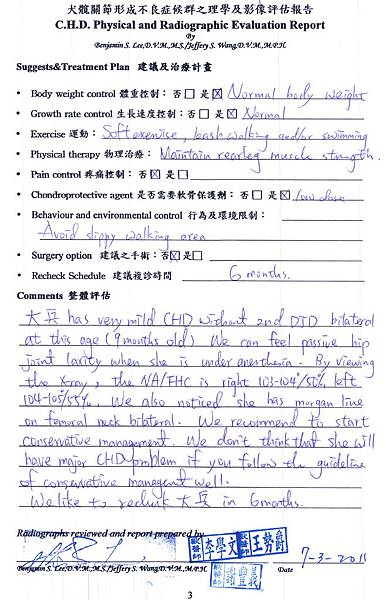 犬髖關節形成不良症候群之理學及影像評估報告
C.H.D. Physical and Radiographic Evaluation Report
By
Benjamin S. Lee,D.V.M.,M.S./Jeffery S. Wang,D.V.M.,M.P.H.
Suggests&Treatment Plan 建議及治療計畫
• Body weight control 體重控制：否☐ 是☒ Normal body weight
• Growth rate control 生長速度控制：否☐ 是☒ Normal
• Exercise 運動： Soft exercise, leash walking and/or swimming
• Physical therapy 物理治療： Maintain rearleg muscle strength.
• Pain control 疼痛控制： 否☒ 是☐
• Chondroprotective agent 是否需要軟骨保護劑：否☐ 是☒ low dose
• Behaviour and environmental control 行為及環境限制：
Avoid slippy walking area
• Surgery option 建議之手術：否☒ 是☐
• Recheck Schedule 建議複診時間 6 months.
Comments 整體評估
大兵 has very mild CHD without 2nd DJD bilateral
at this age (9 months old) We can feel passive hip
joint laxity when she is under anesthesia. By viewing
the Xray, the NA/FHC is right 103-104°/50%, left
104-105/55%. We also noticed she has morgan line
on femoral neck bilateral. We recommend to start
conservative management. We don't think that she will
have major CHD problem if you follow the guideline
of conservative managent well.
We like to recheck 大兵 in 6 months.
Radiographs reviewed and report prepared by
獸醫師 李學文 獸醫師 王勢爵
7-3-2011
Benjamin S. Lee,D.V.M.,M.S./Jeffery S. Wang,D.V.M.,M.P.H. Date
獸醫師
3